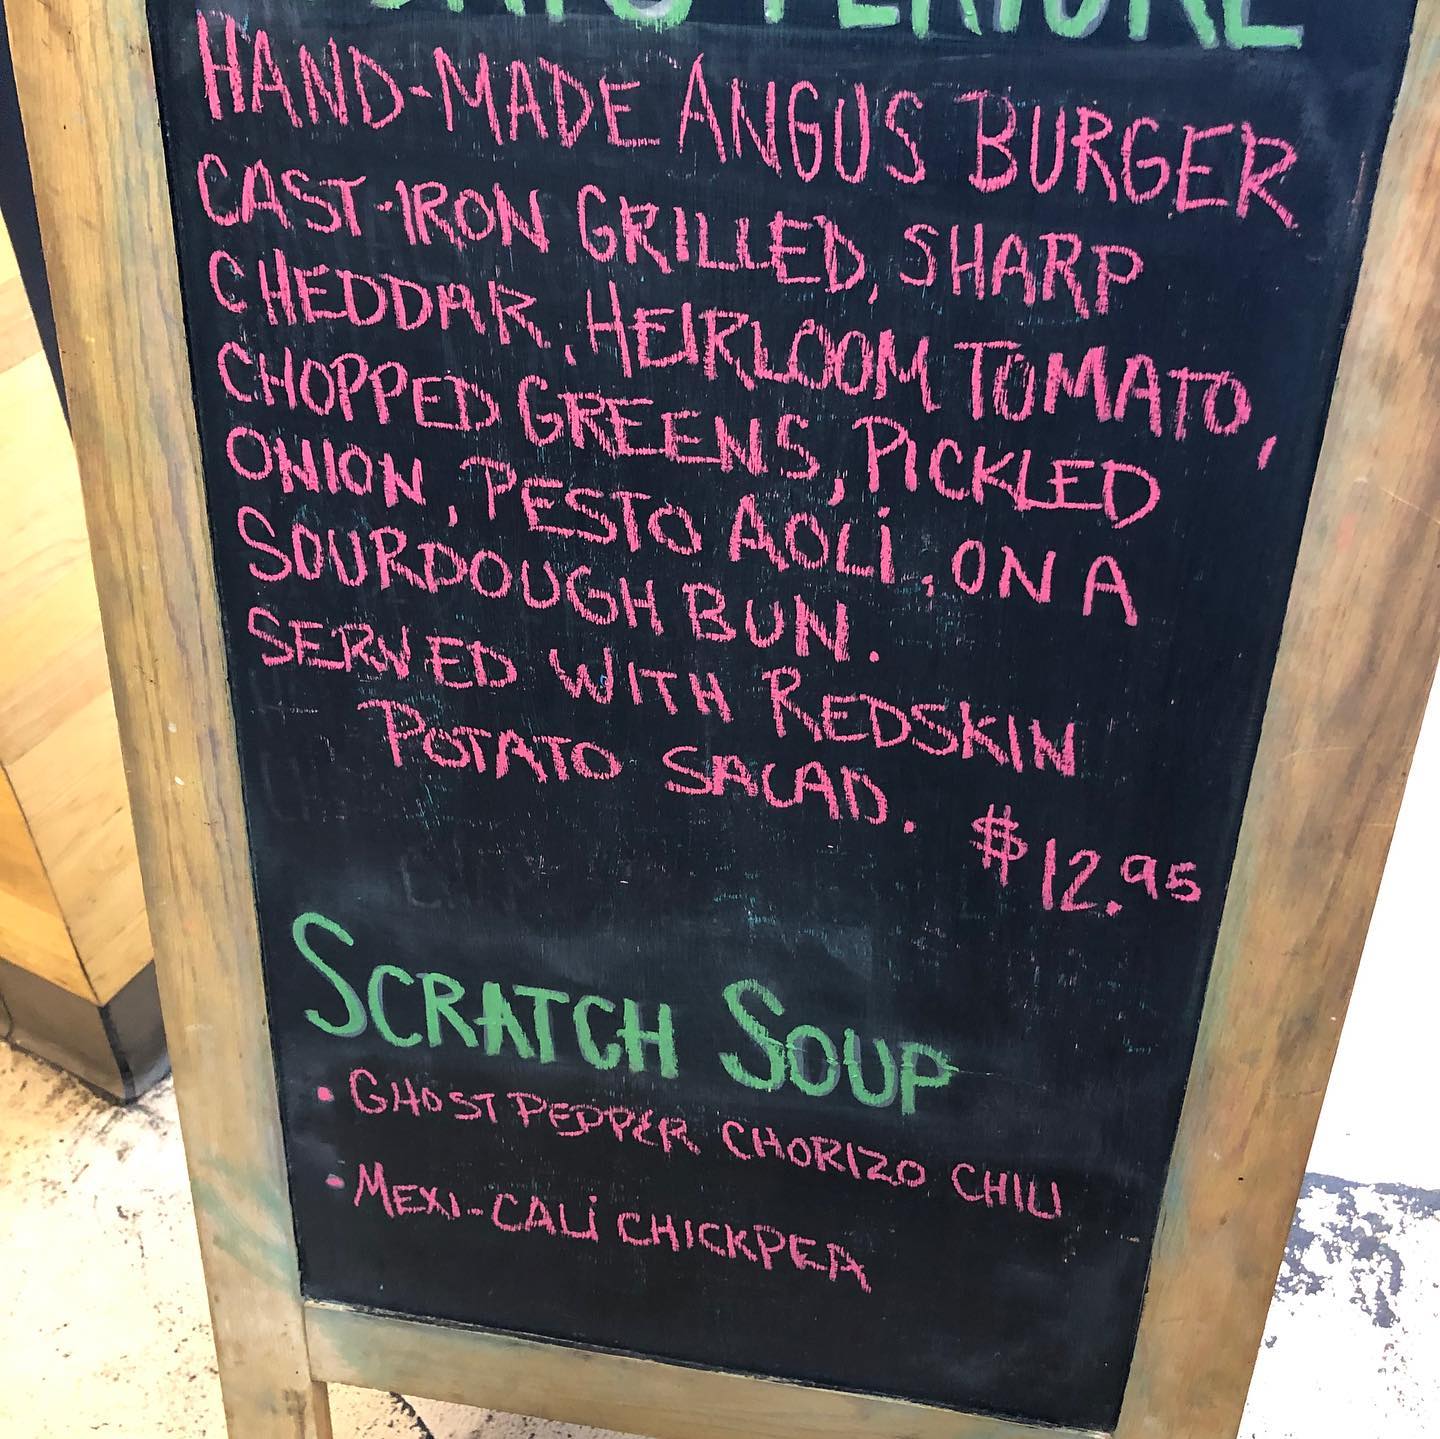 FEATURE
HAND-MADE ANGUS BURGER
CAST-IRON GRILLED, SHARP
CHEDDAR, HEIRLOOM TOMATO,
CHOPPED GREENS, PICKLED
ONION, PESTO AOLI, ON A
SOURDOUGH BUN.
SERVED WITH REDSKIN
POTATO SALAD. $12.95
SCRATCH SOUP
• GHOST PEPPER CHORIZO CHILI
• MEXI-CALI CHICKPEA